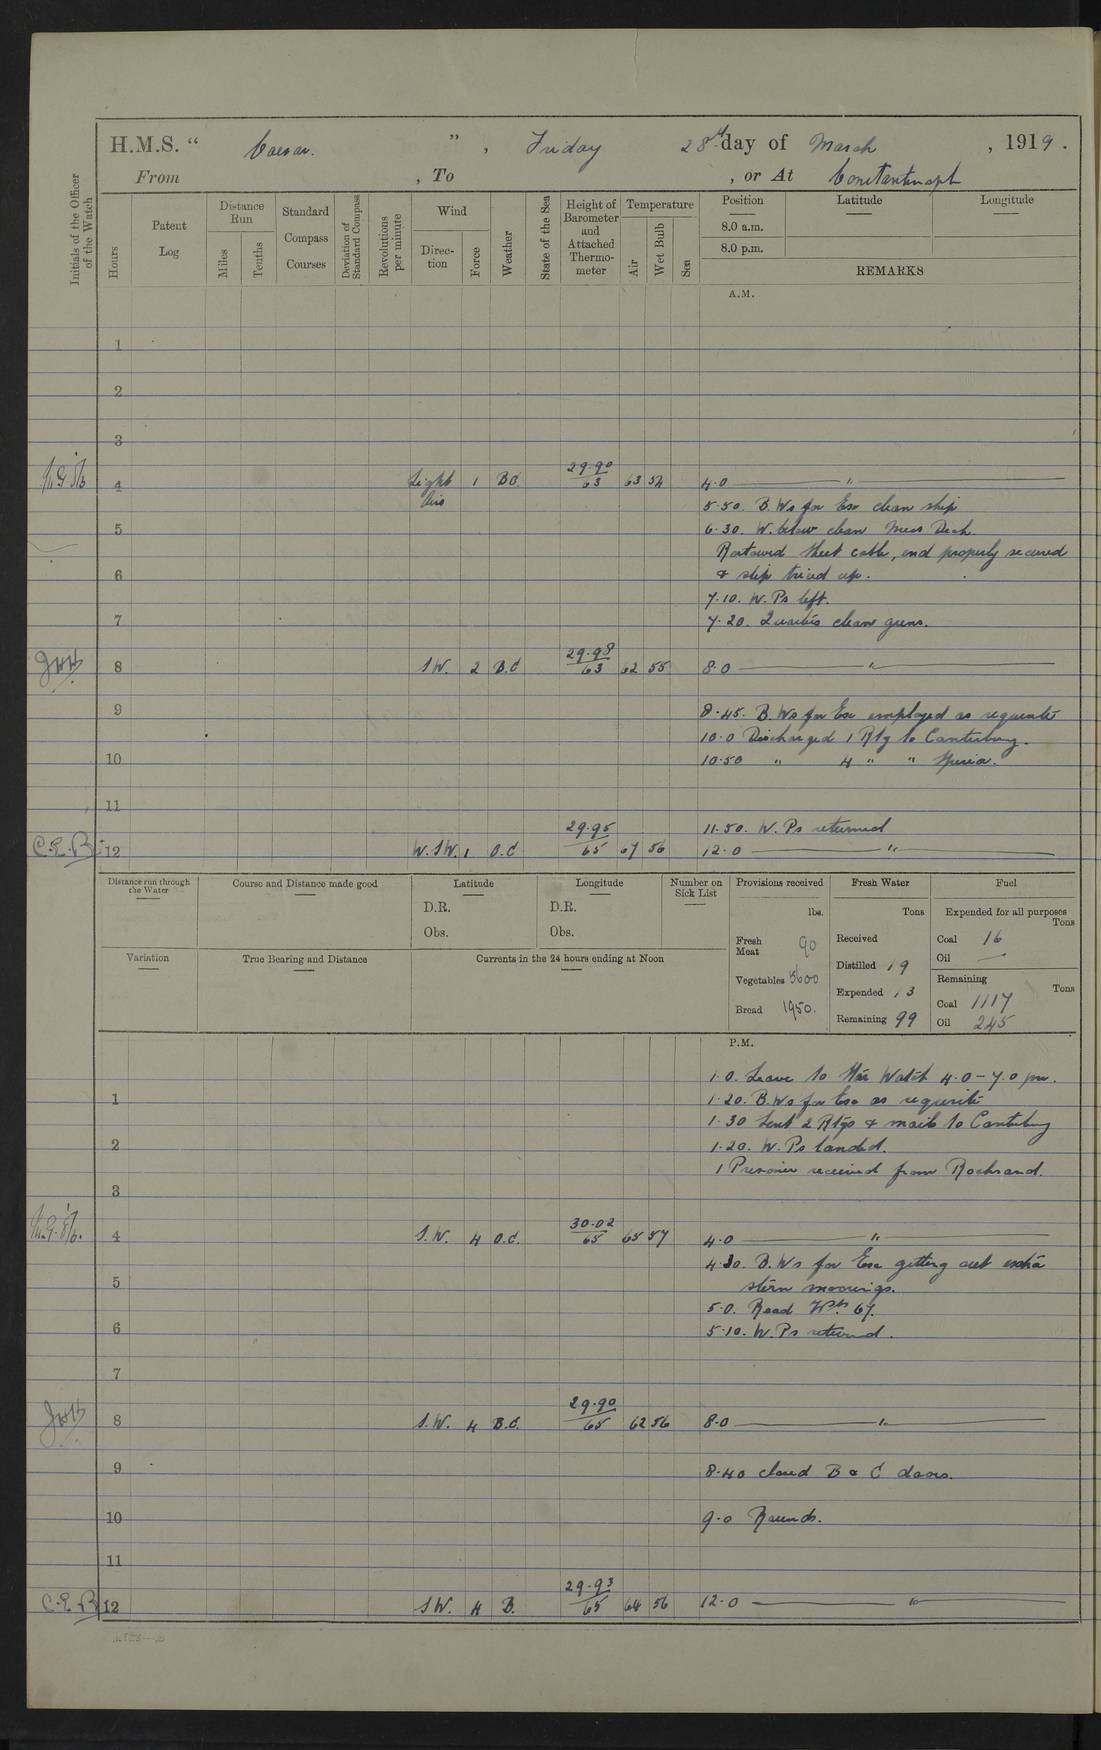 H.M.S. “ Caesar. ” , Friday 28th day of March , 1919 .
From , To , or At Constantinople
Initials of the Officer of the Watch
Hours
Patent Log
Distance Run
Miles
Tenths
Standard Compass Courses
Deviation of Standard Compass
Revolutions per minute
Wind
Direction
Force
Weather
State of the Sea
Height of Barometer and Attached Thermometer
Temperature
Air
Wet Bulb
Sea
Position Latitude Longitude
8.0 a.m.
8.0 p.m.
REMARKS
A.M.
1
2
3
4 Light Airs 1 BC. 29·90 / 63 63 54 4·0 "
5·50. B.Ws for Exe clean ship
5 6·30. W. below clean Mess Deck.
Restowed sheet cable, end properly secured
6 & slip tried up.
7·10. W.Ps left.
7 7·20. Quarters clean guns.
8 SW. 2 B.C. 29·98 / 63 62 55 8·0 "
9 8·45. B.Ws for Exe employed as requisite
10·0 Discharged 1 Rtg to Canterbury.
10 10·50 " 4 " "
11
11·50. W.Ps returned
C.E.B. 12 W.SW. 1 O.C 29·95 / 65 67 56 12·0 "
Distance run through the Water
Course and Distance made good
Latitude
D.R.
Obs.
Longitude
D.R.
Obs.
Number on Sick List
Provisions received
lbs.
Fresh Meat 90
Vegetables 5600
Bread 1950.
Fresh Water
Tons
Received
Distilled 19
Expended 13
Remaining 99
Fuel
Expended for all purposes
Tons
Coal 16
Oil —
Remaining
Tons
Coal 1117
Oil 245
Variation
True Bearing and Distance
Currents in the 24 hours ending at Noon
P.M.
1·0. Leave to Stbd Watch 4·0 – 7·0 pm.
1 1·20. B.Ws for Exe as requisite
1·30 Sent 2 Rtgs & mails to Canterbury
2 1·20. W.Ps landed.
1 Prisoner received from
3
4 S.W. 4 O.C. 30·02 / 65 65 57 4·0 "
4·30. B.Ws for Exe getting out extra
5 stern moorings.
5·0. Read 67.
6 5·10. W.Ps returned.
7
8 S.W. 4 B.C. 29·90 / 65 62 56 8·0 "
9 8·40 closed B & C doors.
10 9·0 Rounds.
11
C.E.B. 12 SW. 4 B. 29·93 / 65 64 56 12·0 "